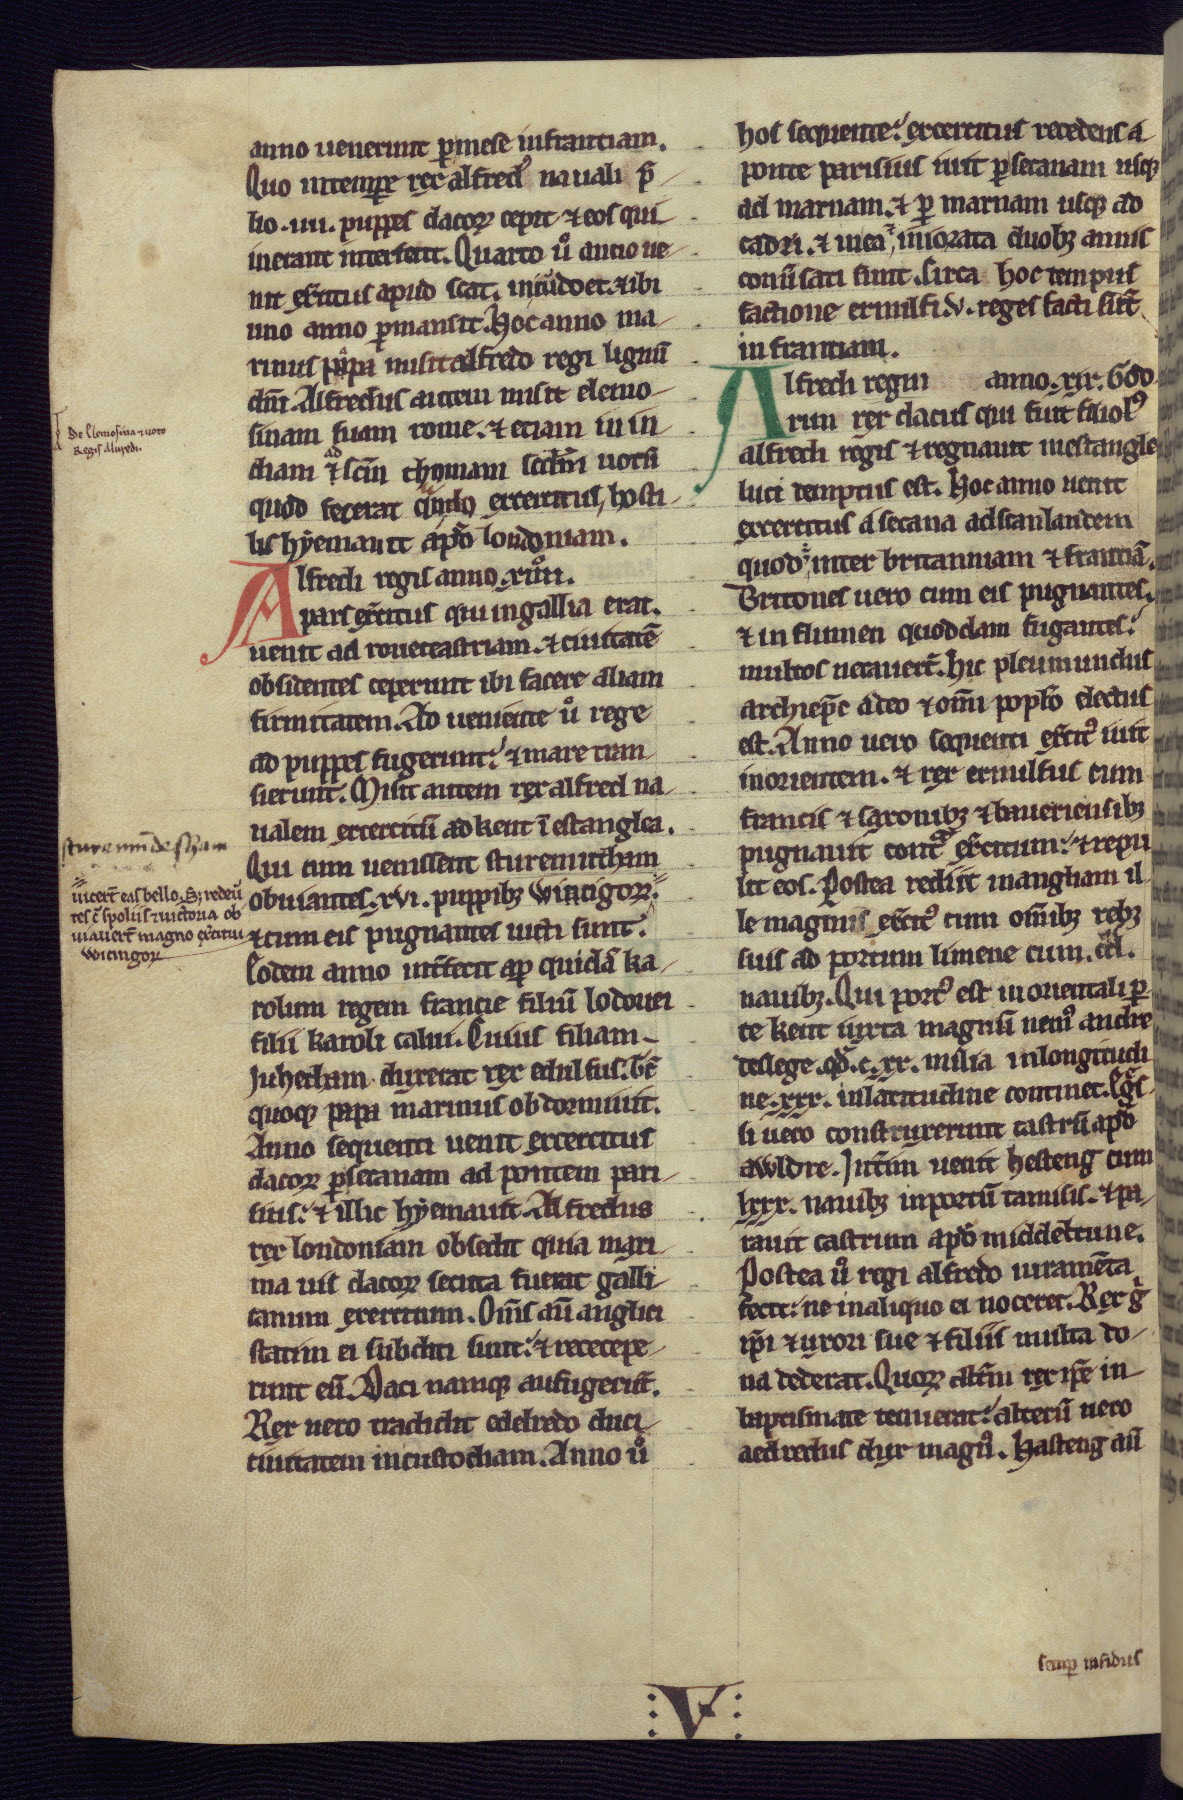 anno uenerunt p mese in franciam.
Quo in tempore rex alfred' nauali p̄
lio .iiii. puppes dacoꝝ cepit ⁊ eos qui
inerant interfecit. Quarto u̾o anno ue
nit exc̄itus apud scat. in ⁊ ibi
uno anno p̱mansit. Hoc anno ma
rinus papa misit alfredo regi lignū
dn̄i. Alfredus autem misit elemo
sinam suam rome. ⁊ etiam in in
diam ad sc̄m thomam scd̄m uotū
quod fecerat quādo excercitus hosti
lis hyemauit apd̾ londoniam.
Alfredi regis anno .xiiii.
pars exc̄itus qui in gallia erat.
uenit ad rouecastriam. ⁊ ciuitatē
obsidentes ceperunt ibi facere aliam
firmitatem. Ad ueniente u̾o rege
ad puppes fugerunt: ⁊ mare tran
sierunt. Misit autem rex alfred na
ualem excercitū ad kent ī estanglea.
Qui cum uenissent sturemutham
obuiantes .xvi. puppibꝫ Witingoꝝ:
⁊ cum eis pugnantes uicti sunt.
Eodem anno int̄fecit ap̱ quidā ka
rolum regem francie filiū lodouei
filii karoli calui. Cuius filiam
Juhetham duxerat rex edulfus. t̄c
quoqꝫ papa marinus obdormiuit.
Anno sequenti uenit excercitus
dacoꝝ p̱ secanam ad pontem pari
sius: ⁊ illic hyemauit. Alfredus
rex londoniam obsedit quia mari
ma uis dacoꝝ secuta fuerat galli
canum exercitum. Om̄s aū anglici
statim ei subditi sunt: ⁊ rececepe
runt eū. Daci namqꝫ aufugerūt.
Rex uero tradidit edelredo duci
ciuitatem in custodiam. Anno u̾o
hos sequente: excercitus recedens a
ponte parisius iuit p̱ secanam usqꝫ
ad marnam. ⁊ p̱ marnam usqꝫ ad
cadri. ⁊ in ea ī morata duobꝫ annis
conūsati sunt. Circa hoc tempus
factione ernulfi .v. reges facti sūt
in franciam.
Alfredi regni anno .xix. God
run rex dacus qui fuit filiol'
alfredi regis ⁊ regnauit in estangle
luci demptus est. Hoc anno uenit
excercitus a secana ad scanlaudem
quod ē inter britanniam ⁊ franciā.
Britones uero cum eis pugnantes.
⁊ in flumen quoddam fugantes:
multos necauerūt. Hic pleumundus
archiep̄c a deo ⁊ om̄i poplo electus
est. Anno uero sequenti exc̄it' iuit
in orientem. ⁊ rex ernulfus cum
francis ⁊ saxonibꝫ ⁊ baueriensibꝫ
pugnauit cont̾ exc̄itum: ⁊ repu
lit eos. Postea rediit in angliam il
le magnus exc̄it' cum om̄ibꝫ rebꝫ
suis ad portum limene cum .ccl.
nauibꝫ. Qui port' est in orientali p̱
te kent iuxta magnū nem' andre
deslege. qd̾ .c.xx. milia in longitudi
ne .xxx. in latitudine continet. Egs̄
si uero construxerunt castrū apd̾
awldre. Int̄im uenit hesteng cum
lxxx. nauibꝫ in portū tamisis. ⁊ pa
rauit castrum apd̾ middeltune.
Postea u̾o regi alfredo iuramēta
fecit: ne in aliquo ei noceret. Rex g̾
ip̄i ⁊ uxori sue ⁊ filiis multa do
na dederat. Quoꝝ alt̄m rex ip̄e in
baptismate tenuerat: alterū uero
aedredus dux magn'. Hasteng aū
De Elemosina ⁊ uoto
Regis Aluredi.
sturemūdes ham
uicert̄ eas bello. S; redeū
tes c̄ spoliis ⁊ uictoria ob
uiauert̄ magno exc̄itui
Witingoꝝ
semp̱ infidus
V